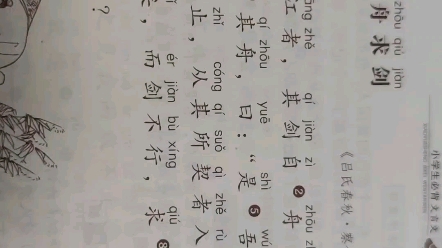 小学生必背文言文
zhōu qiú jiàn
舟求剑
《吕氏春秋·察
zhě qí jiàn zì zhōu
江者，其剑自❷舟
qí zhōu yuē shì wú
其舟，曰：“是❺吾
zhǐ cóng qí suǒ qì zhě rù
止，从其所契者入
ér jiàn bù xíng qiú
，而剑不行，求❽
？